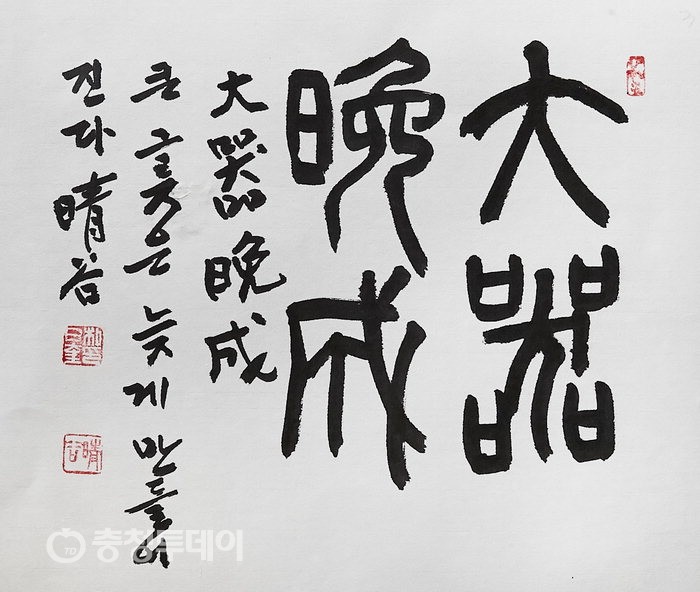 大器
晩成
大器晩成
큰 그릇은 늦게 만들어
진다 晴谷
晴谷
충청투데이